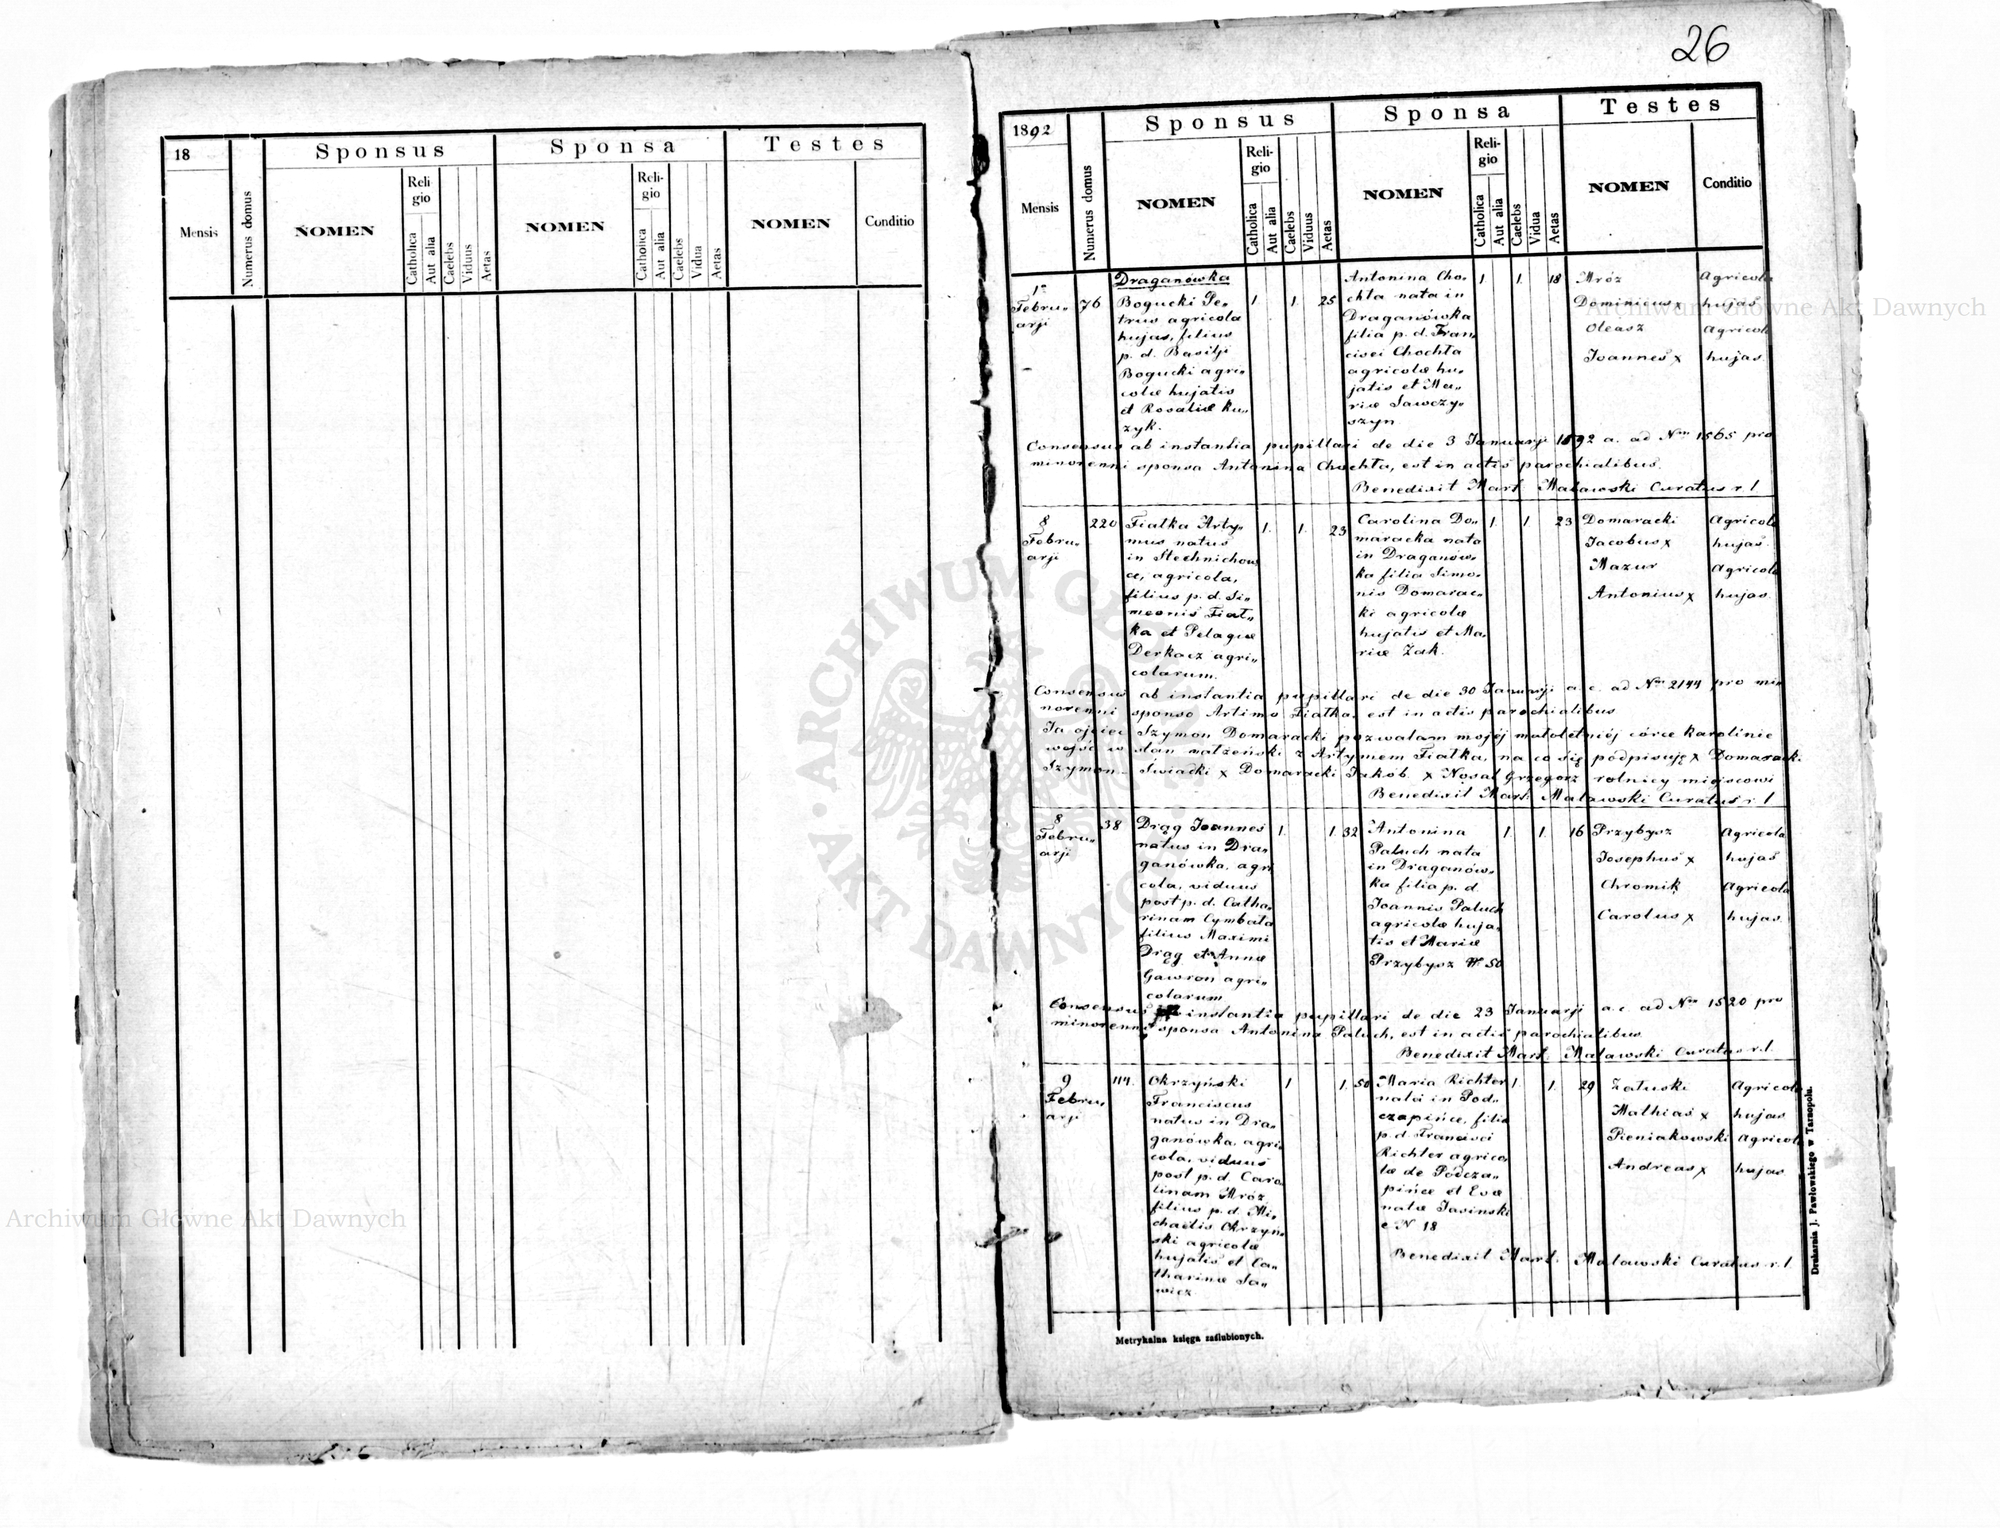 26
18
Sponsus
Sponsa
Testes
Mensis
Numerus domus
NOMEN
Religio
Catholica
Aut alia
Caelebs
Viduus
Aetas
NOMEN
Religio
Catholica
Aut alia
Caelebs
Vidua
Aetas
NOMEN
Conditio
1892
Sponsus
Sponsa
Testes
Mensis
Numerus domus
NOMEN
Reli-
gio
Catholica
Aut alia
Caelebs
Viduus
Aetas
NOMEN
Reli-
gio
Catholica
Aut alia
Caelebs
Vidua
Aetas
NOMEN
Conditio
Draganówka
Febru-
arji
76
Bogucki Pe-
trus agricola
hujas, filius
p. d. Basilji
Bogucki agri-
colæ hujatis
et Rosaliæ Ku-
zyk.
1 1 25
Antonina Cho-
chła nata in
Draganówka
filia p. d. Fran-
cisci Chochła
agricolæ hu-
jatis et Ma-
riæ Sawczy-
szyn
1 1 18
Mróz Agricola
Dominicus x hujas
Oleasz Agricola
Joannes x hujas
Consensus ab instantia pupillari de die 3 Januarji 1892 a. ad Nrm 1565 pro
minorenni sponsa Antonina Chochła, est in actis parochialibus.
Benedixit Mart. Maławski Curatus r. l.
8
Febru-
arji
220
Fiałka Arty-
mus natus
in Stechnikow
ce, agricola,
filius p. d. Si-
meonis Fiał-
ka et Pelagiæ
Derkacz agri-
colarum.
1. 1. 23
Carolina Do-
maracka nata
in Draganów-
ka filia Simo-
nis Domarac-
ki agricolæ
hujatis et Ma-
riæ Żak.
1. 1 23
Domaracki Agricola
Jacobus x hujas.
Mazur Agricola
Antonius x hujas
Consensus ab instantia pupillari de die 30 Januarji a. c. ad Nrm 2144 pro mi-
norenni sponso Artimo Fiałka, est in actis parochialibus
Ja ojciec Szymon Domaracki pozwalam mojéj małoletniéj córce Karolinie
wejść w stan małżeński z Artymem Fiałka, na co się podpisuję x Domaracki
Szymon - Świadki x Domaracki Jakób x Nosal Grzegorz rolnicy miejscowi
Benedixit Mart. Maławski Curatus r. l.
8
Febru-
arji
38
Drąg Joannes
natus in Dra-
ganówka, agri
cola, viduus
post p. d. Catha-
rinam Cymbała
filius Maximi
Drąg et Annæ
Gawron agri-
colarum
1. 1. 32
Antonina
Paluch nata
in Draganów-
ka filia p. d.
Joannis Paluch
agricolæ huja-
tis et Mariæ
Przybysz N. 50
1. 1. 16
Przybysz Agricola
Josephus x hujas
Chromik Agricola
Carolus x hujas.
Consensus instantia pupillari de die 23 Januarji a. c. ad Nrm 1520 pro
minorenni sponsa Antonina Paluch, est in actis parochialibus
Benedixit Mart. Maławski Curatus r. l.
9
Febru-
arji
114.
Okrzyński
Franciscus
natus in Dra-
ganówka, agri-
cola, viduus
post p. d. Caro
linam Mróz
filius p. d. Mi-
chaelis Okrzyń-
ski agricolæ
hujatis et Ca-
tharinæ Sa-
wicz
1 1. 50
Maria Richter
nata in Pod-
czapińce, filia
p. d. Francisci
Richter agrico-
læ de Podcza-
pińce et Evæ
natæ Jasinski
e N 18
1. 1. 29
Załuski Agricola
Mathias x hujas
Pieniakowski Agricola
Andreas x hujas
Benedixit Mart. Maławski Curatus r. l.
Metrykalna księga zaślubionych.
Drukarnia J. Pawłowskiego w Tarnopolu.
Archiwum Główne Akt Dawnych
Archiwum Główne Akt Dawnych
ARCHIWUM GŁÓWNE AKT DAWNYCH